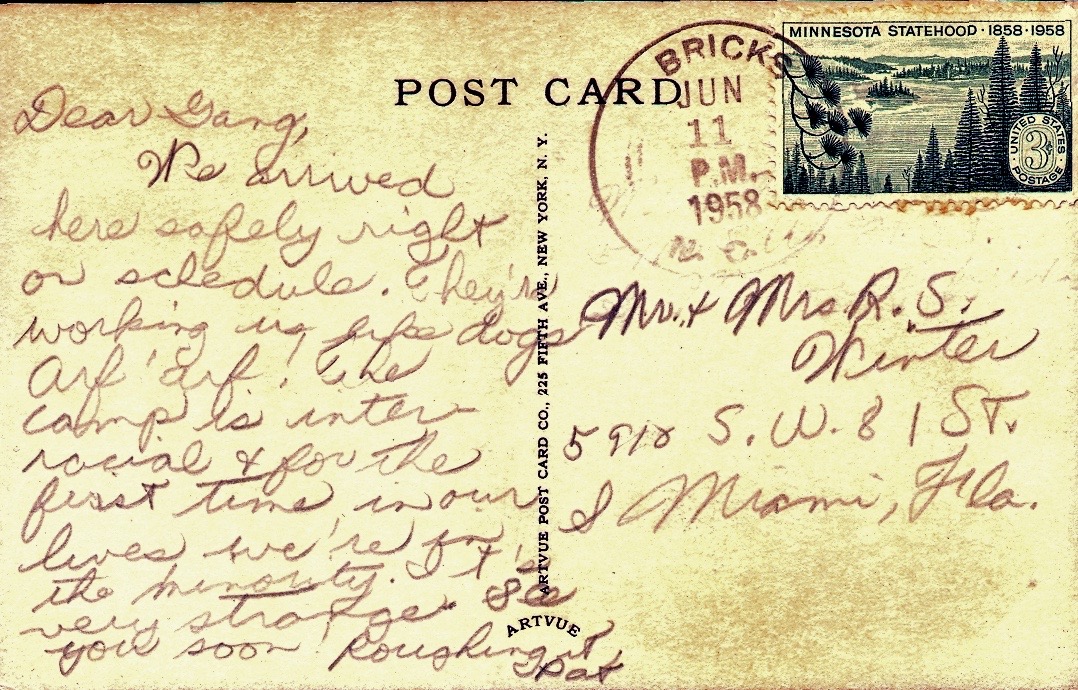 POST CARD
BRICKS
JUN
11
P.M.
1958
N. C.
MINNESOTA STATEHOOD · 1858 · 1958
UNITED STATES
3¢
POSTAGE
Dear Gang,
We arrived
here safely right
on schedule. They're
working us like dogs
Arf arf! The
camp is inter-
racial & for the
first time in our
lives we're in
the minority. It's
very strange. See
you soon Roughing it
Pat
ARTVUE POST CARD CO., 225 FIFTH AVE., NEW YORK, N. Y.
ARTVUE
Mr. & Mrs R. S.
Winter
S.W. 81 ST.
S Miami, Fla.